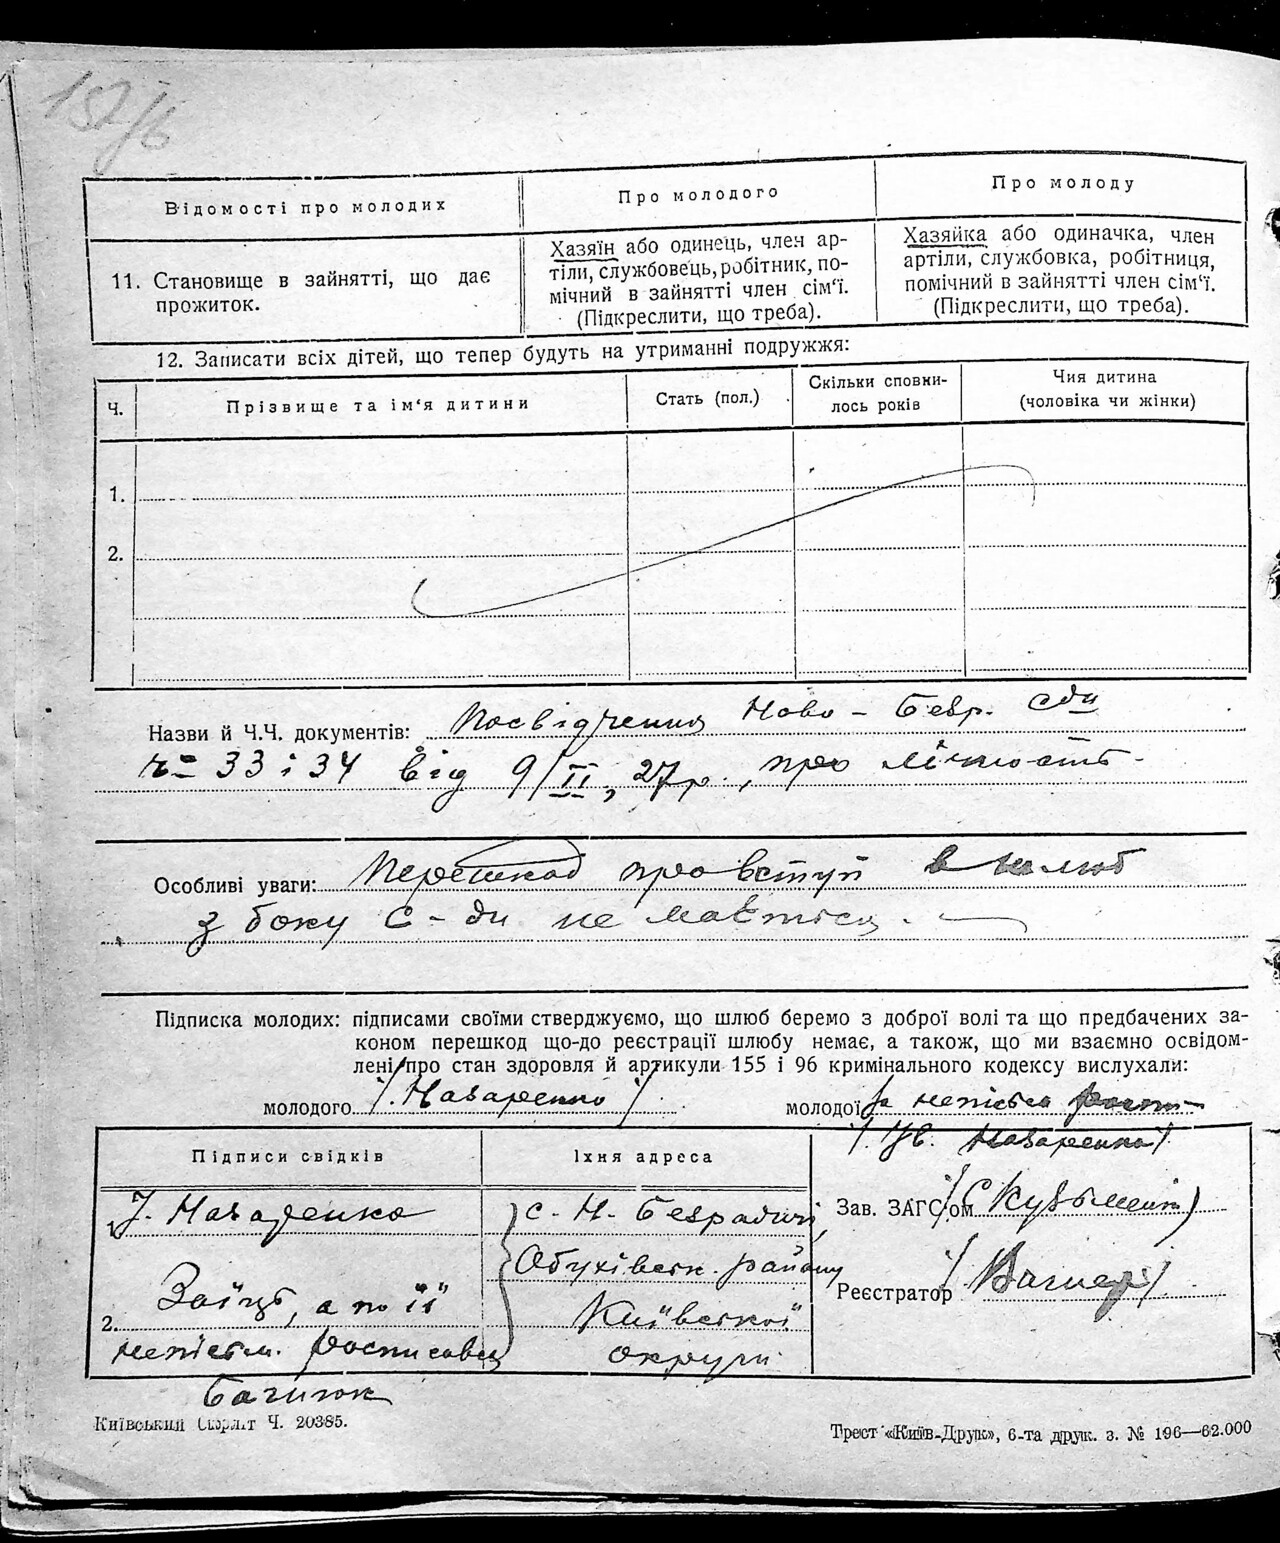 157/6
Відомості про молодих
Про молодого
Про молоду
11. Становище в зайнятті, що дає
прожиток.
Хазяїн або одинець, член ар-
тіли, службовець, робітник, по-
мічний в зайнятті член сім'ї.
(Підкреслити, що треба).
Хазяйка або одиначка, член
артіли, службовка, робітниця,
помічний в зайнятті член сім'ї.
(Підкреслити, що треба).
12. Записати всіх дітей, що тепер будуть на утриманні подружжя:
Ч.
Прізвище та ім'я дитини
Стать (пол.)
Скільки сповни-
лось років
Чия дитина
(чоловіка чи жінки)
1.
2.
Назви й Ч.Ч. документів: Посвідчення Ново-Безр. С/ди
ч= 33 і 34 від 9/II, 27р., про лічность.
Особливі уваги: Перешкод про вступ в шлюб
з боку С-ди не мається.
Підписка молодих: підписами своїми стверджуємо, що шлюб беремо з доброї волі та що предбачених за-
коном перешкод що-до реєстрації шлюбу немає, а також, що ми взаємно освідом-
лені про стан здоровля й артикули 155 і 96 кримінального кодексу вислухали:
молодого /. Назаренко /.
молодої за непісьм
Назаренко/.
Підписи свідків
Їхня адреса
Назаренко
2. Заїць, а по її
непісьм. росписавсь
с. Н. Безрадичі,
Обухівськ. району
Київської
округи
Зав. ЗАГС'ом
Реєстратор /Вагнер/
Київський Окрліт Ч. 20385.
Трест «Київ-Друк», 6-та друк. з. № 196—62.000